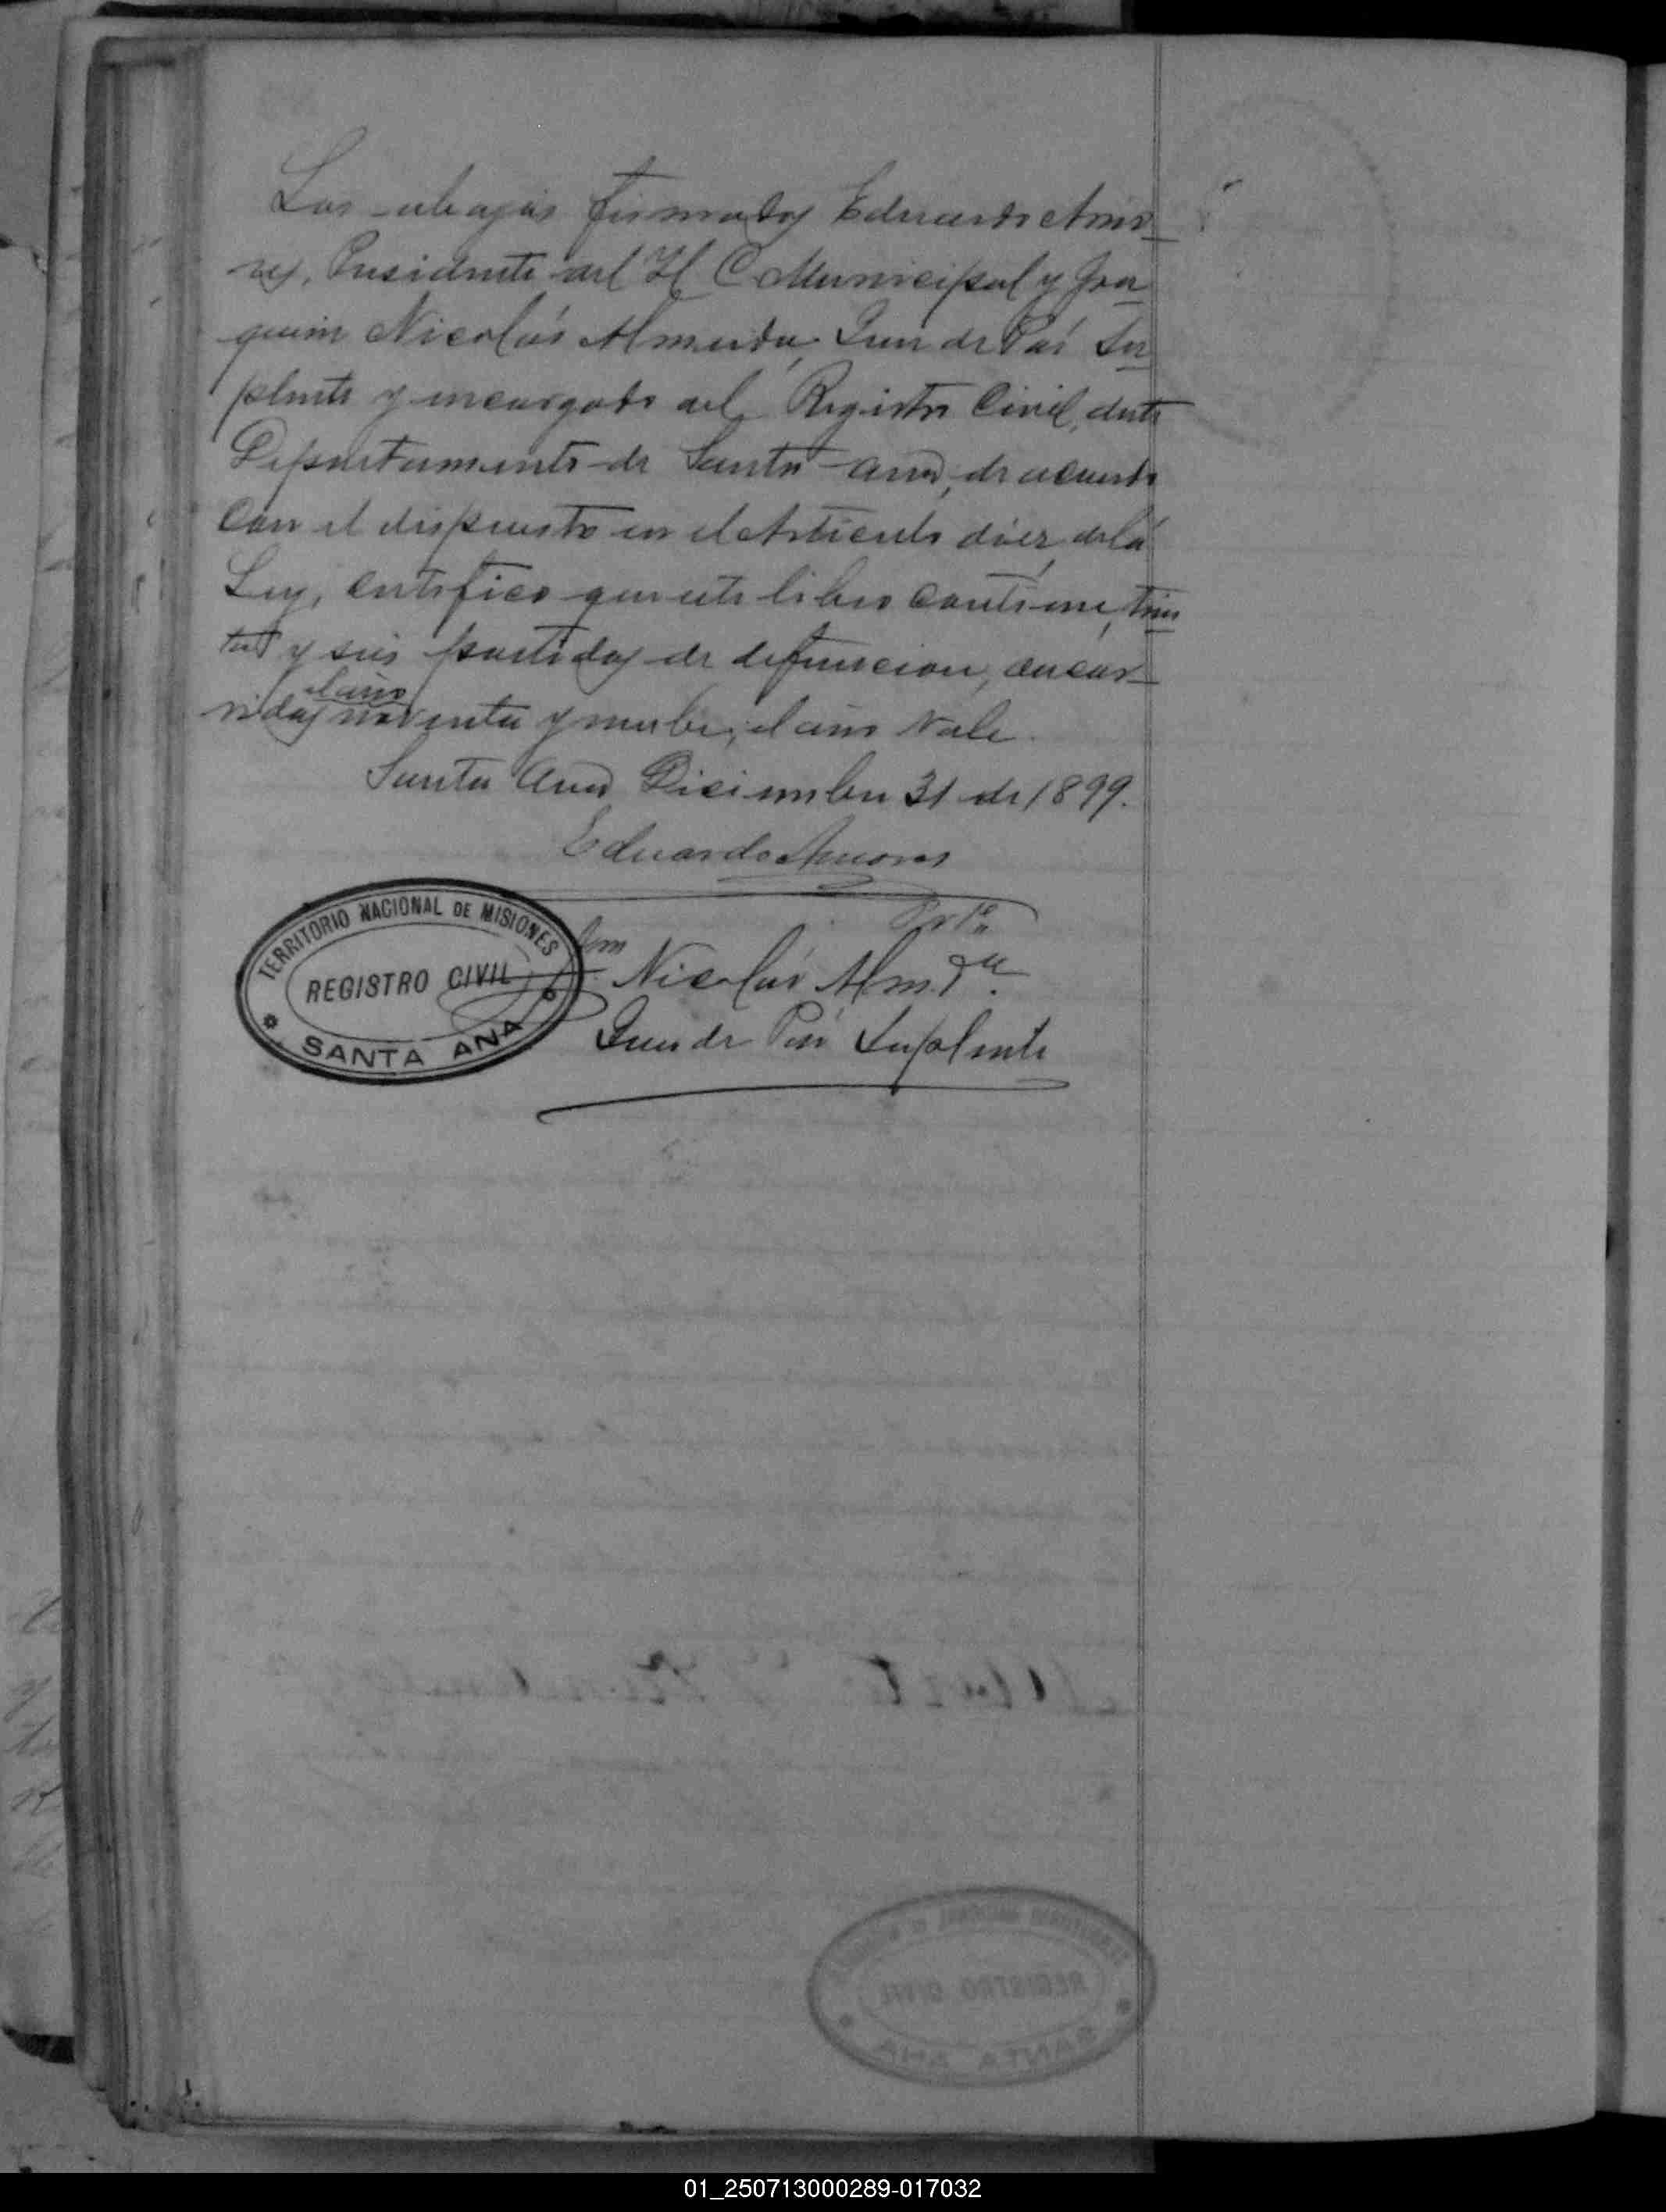 Los abajos firmados Eduardo Amo-
res, Presidente del H C Municipal y Joa-
quim Nicolás Almeida, Juez de Paz Su-
plente y encargado del Registro Civil, deste
Departamento de Santa Ana, de acuerdo
Con el dispuesto en el Articulo diez dela
Ley, certifico que este libro contiene, trein-
ta y seis partidas de defuncion, ocuor-
ridas el año noventa y nuebe, el año Vale.
Santa Ana Diciembre 31 de 1899.
Eduardo Amores
TERRITORIO NACIONAL DE MISIONES
REGISTRO CIVIL
SANTA ANA
Nicolás Almda.
Juez de Paz Suplente
REGISTRO CIVIL
SANTA ANA
01_250713000289-017032